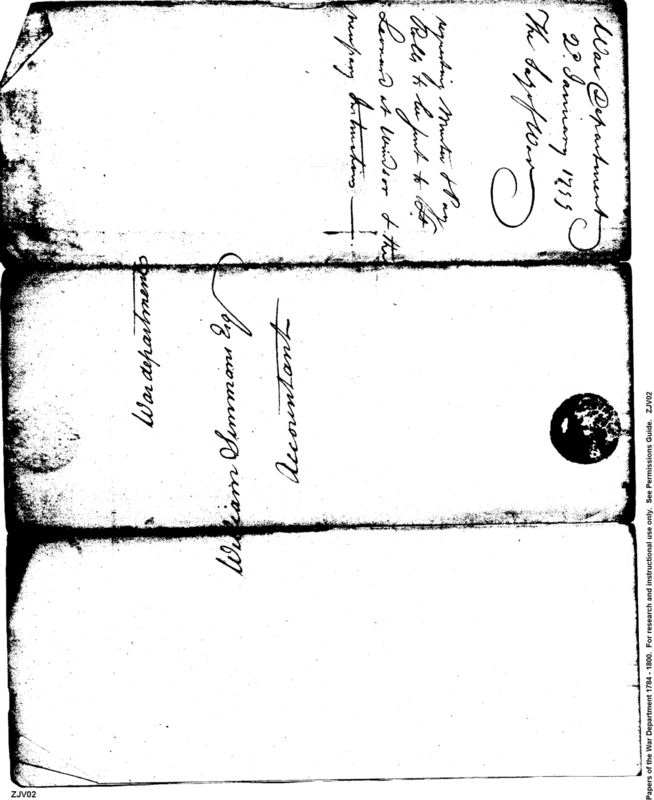 War Department
2d. January 1799
The Secy of War
requesting Muster & Pay
Rolls to be sent to Lt.
Leonard at Windsor & the
necessary Instructions
William Simmons Esq
Accountant
War department
Papers of the War Department 1784 - 1800. For research and instructional use only. See Permissions Guide. ZJV02
ZJV02